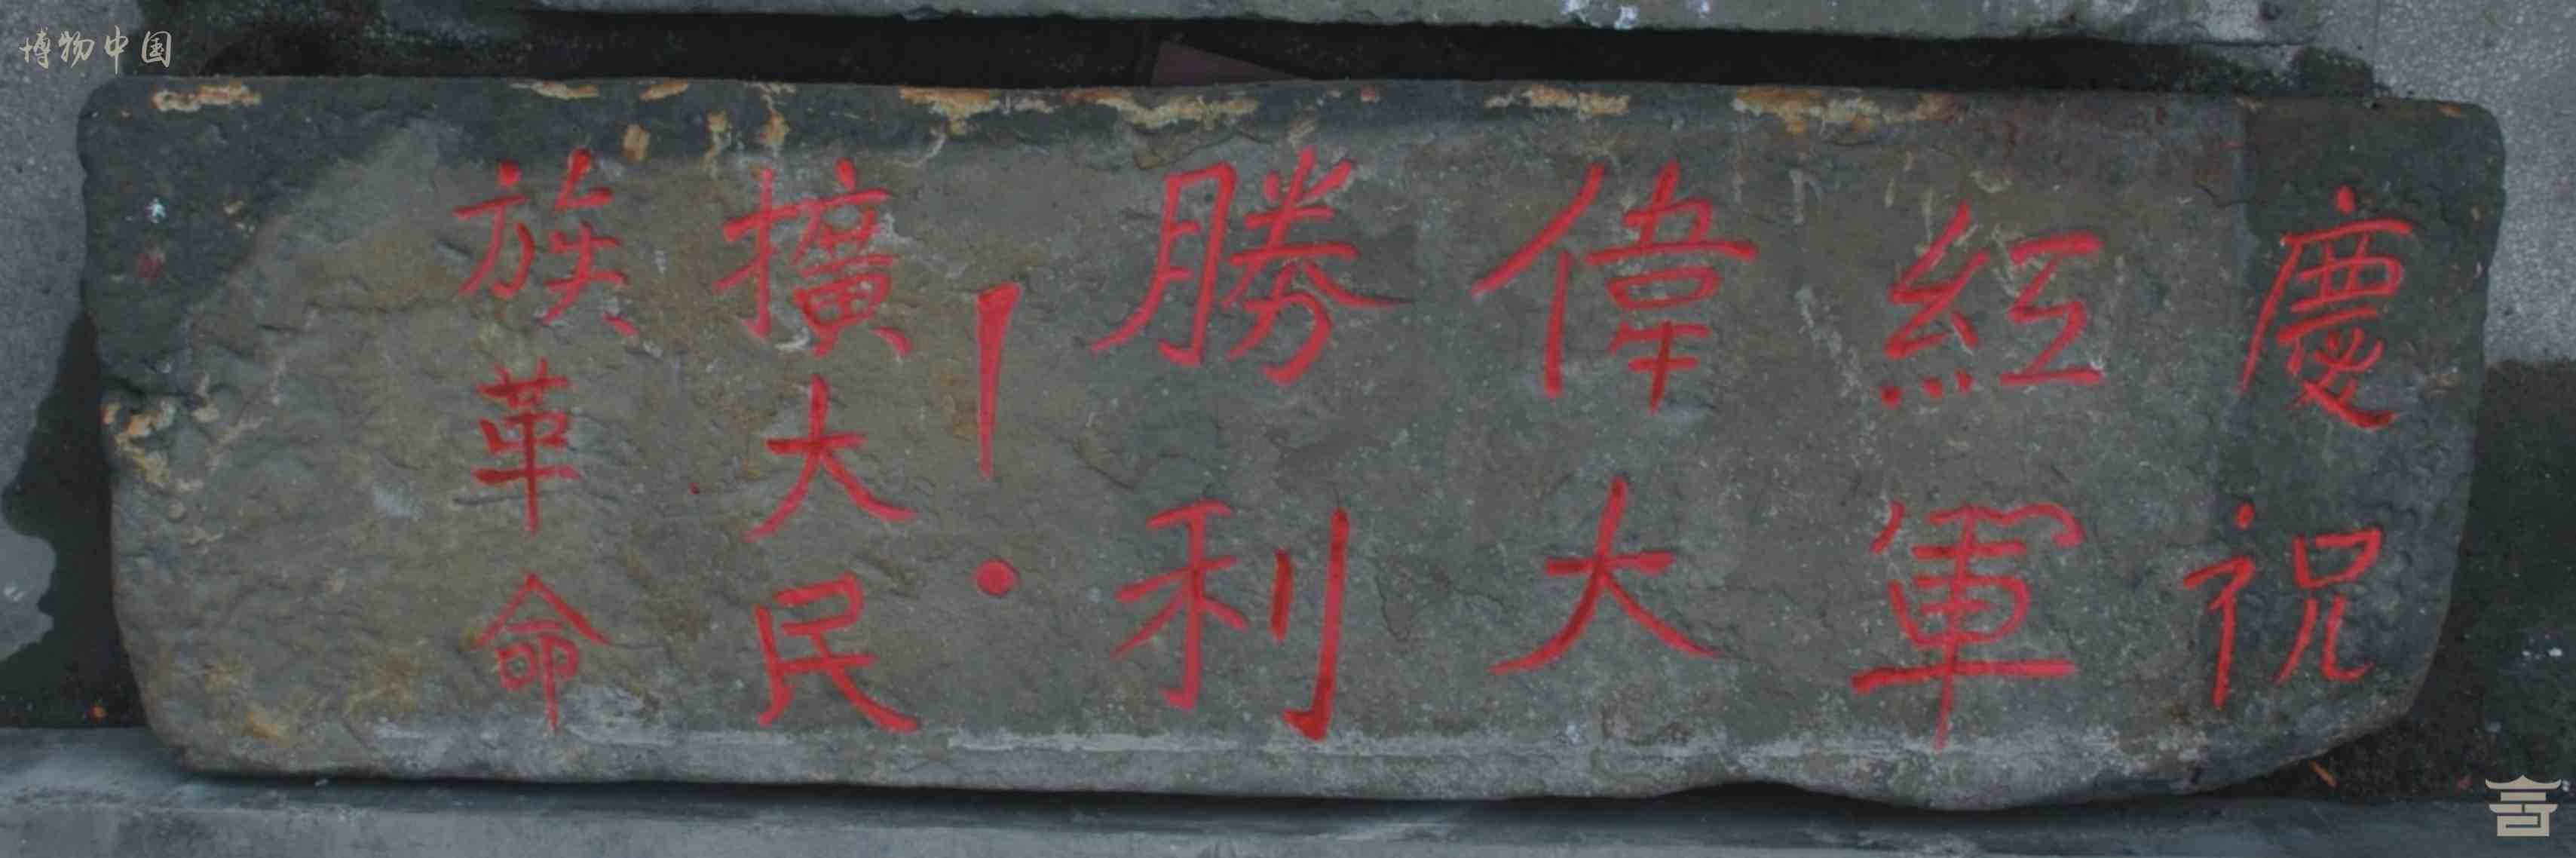 慶祝
紅軍
偉大
勝利
！
擴大民
族革命
博物中国